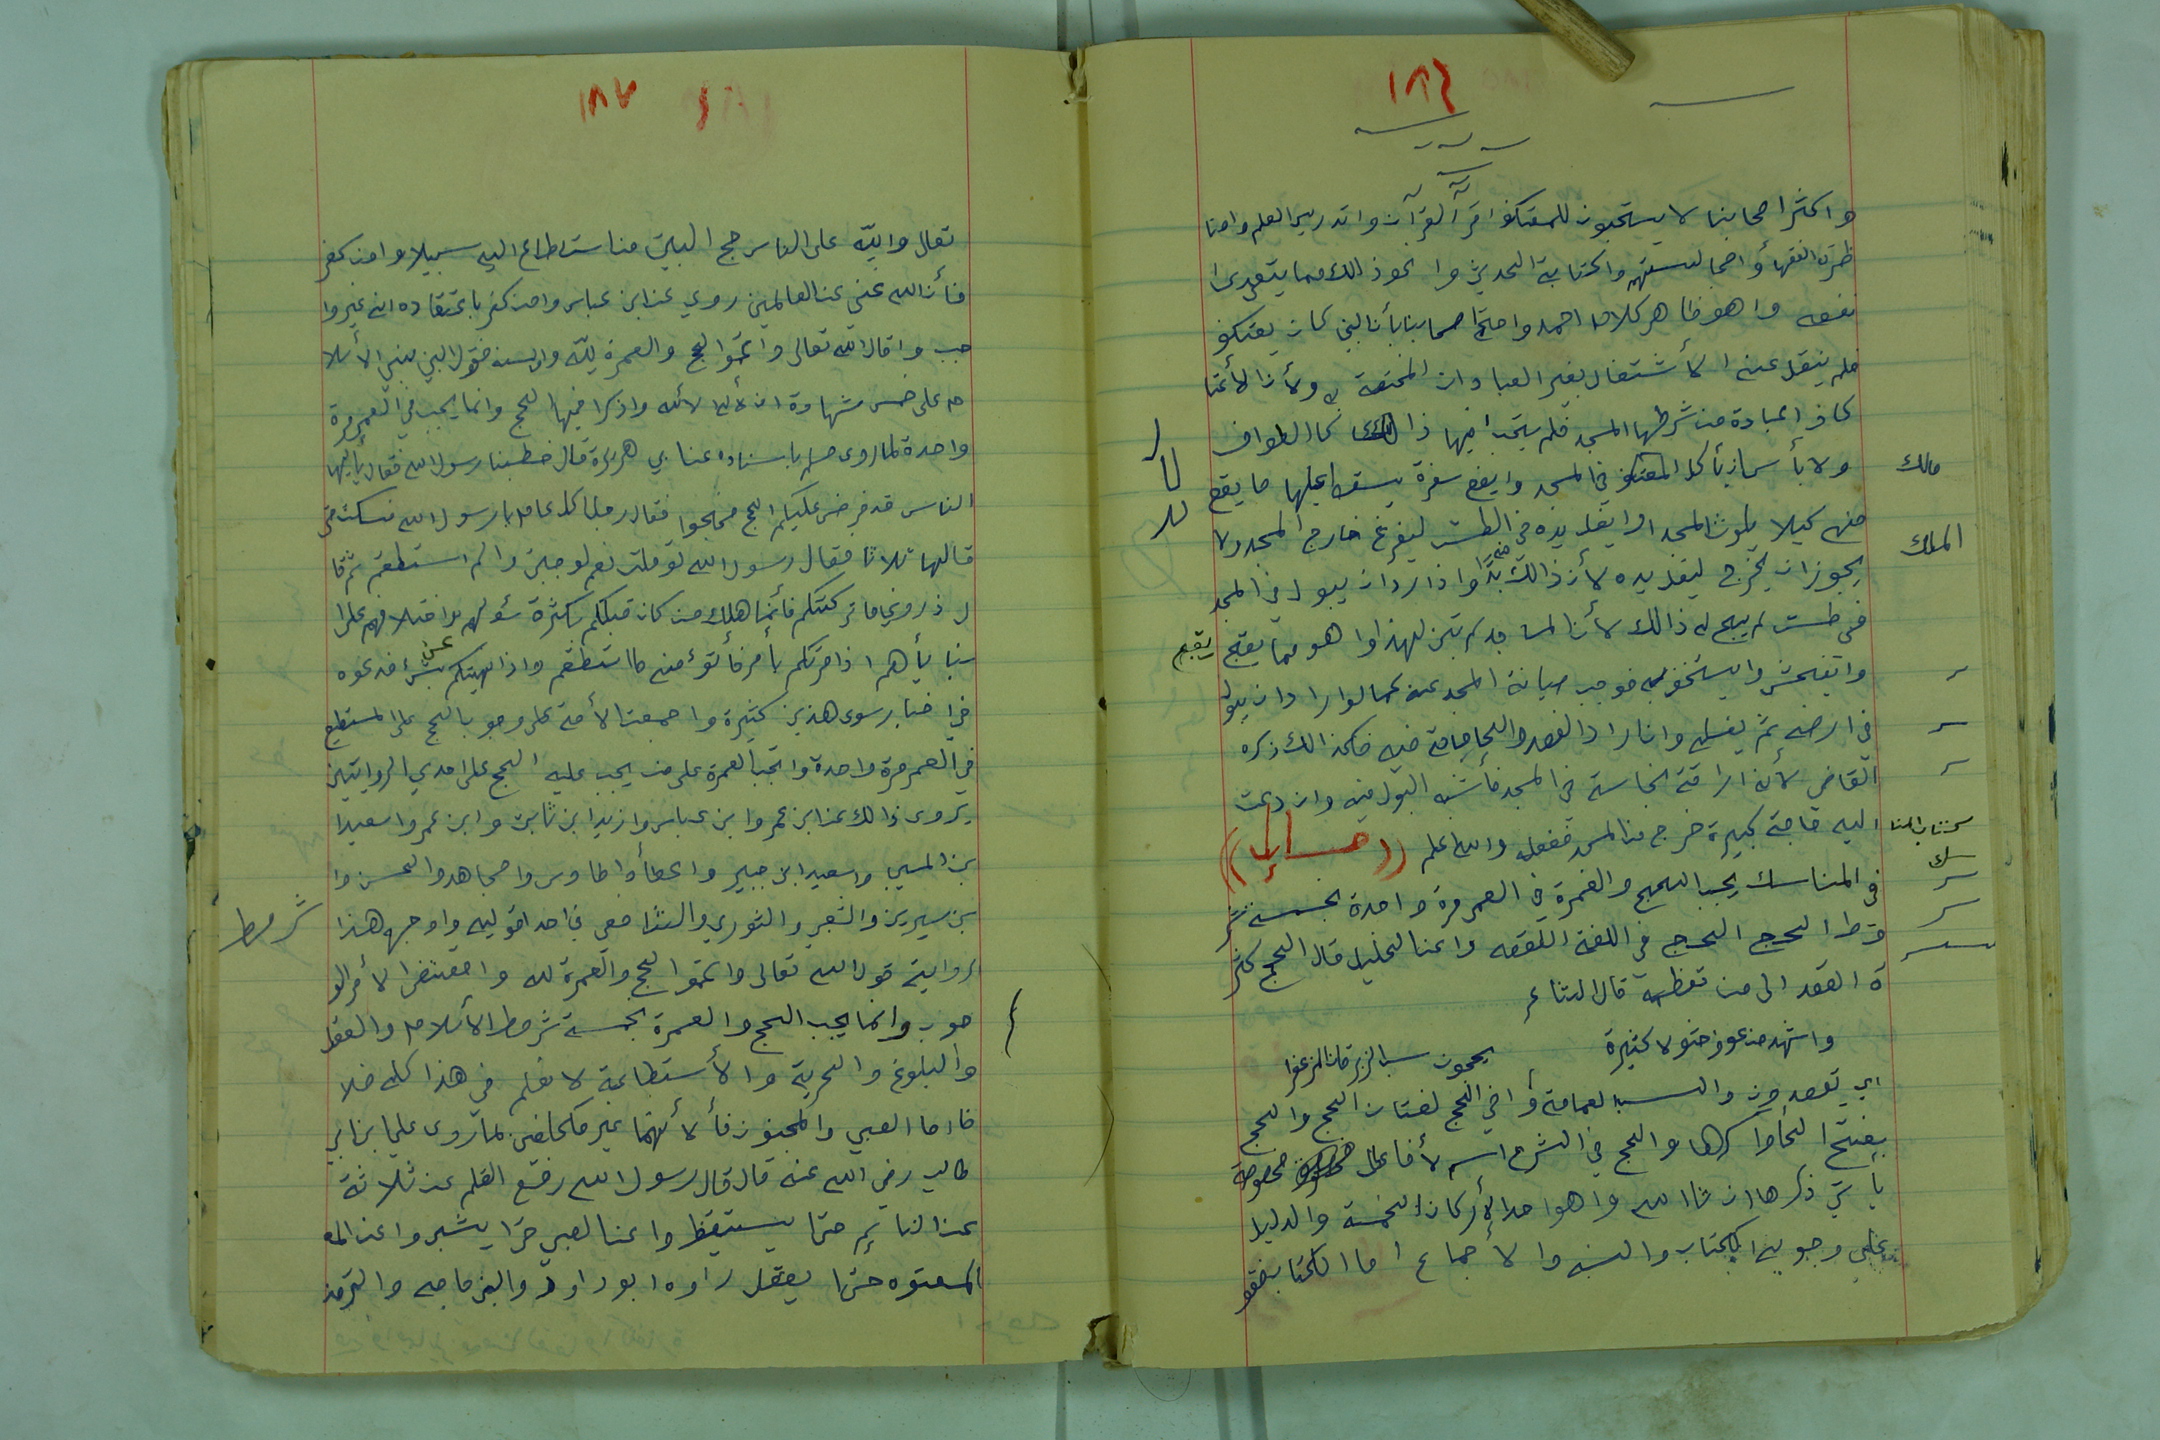 ١٨٦
واكثر اصحابنا لا يستحبون للمعتكف اقرآ القرآن واتدريس العلم وامنا
ظرت الفقهأ وامجا لستهم واكتابة الحديث وا نحو ذالك مما يتعدى ا
نفعه واهو ظاهر كلام احمد واحتج اصحابنا بأنالنبي كان يعتكف
فلم ينقل عنه الأشتغال بغير العبادات المختصة به ولأن الأعتا
كاف اعبادة من شرطها المسجد فلم يستحب افيها ذالك كا الطواف
ولا بأس بأن يأكل المعتكف في المسجد وايضع سفرة يسقط اعليها ما يقع
منه كيلا يلوث المسجد او ايغسل يده في الطست ليفرغ خارج المسجد ولا
يجوز ان يخرج ليغسل يده لأن ذالك منه بدا واذا اراد ان يبول في المسجد
في طست لم يبح له ذالك لأن المساجد لم تبن لهذا واهو مما يقبح
يقبح
وايفحش وايستخفى به فوجب صيانة المسجد عنه كما لو اراد ان يبول
في ارضه ثم يغسله وان اراد الفصد والحجامة فيه فكذالك ذكره
القاضي لأنه اراقة نجاسة في المسجد فأشبه البول فيه وان دعت
اليه حاجة كبيرة خرج من المسجد ففعله والله اعلم
في المناسك يجب الحج والعمرة في العمر مرة واحدة بخمسة شر
وط الحج الحج في اللغة القصد واعن الخليل قال الحج كثر
ة القصد الى من تعظمه قال الشاعر
واشهد من عوف حئولا كثيرة يحجون سب الزبرقان المزعفرا
اي يقصدون والسب العمامة وافي الحج لغتان الحج والحج
بفتح الحأ واكسرها والحج في الشرع اسم لأفعال مخصوصة
يأتي ذكرها ان شا الله واهو احد الأركان الخمسة والدليل
على وجوبه الكتاب والسنه والأجماع اما الكتاب فقو
مالك
المالك
١٨٧
تعالى والله على الناس حج البيت من استطاع اليه سبيلا وامن كفر
فأن الله غني عن العالمين روي عن ابن عباس وامن كفر باعتقاده انه غير وا
جب وقال الله تعالى واتمو الحج والعمرة لله والسنه فقول النبي بني الأسلا
م على خمس شهادة ان لا اله الا الله واذكرا فيها الحج وانما يجب في العمر مرة
واحدة لما روى مسلم باسناده عن ابي هريرة قال خطبنا رسول الله فقال يا أيها
الناس قد فرض عليكم الحج فحجوا فقال رجل اكل عام يا رسول الله فسكت حتى
قالها ثلاثا فقال رسول الله لو قلت نعم لوجبت ولم استطعتم ثم قا
ل ذروني ما تركتكم فأنما هلك من كان قبلكم بكثرة سؤالهم وا ختلافهم على ا
نبيأهم اذا امرتكم بأمر فأتو منه ما استطعتم واذا نهيتكم عن شئ فدعوه
في اخبار سوى هذين كثيرة واجمعت الأمة على وجوب الحج على المستطيع
في العمر مرة واحدة واتجب العمرة على من يجب عليه الحج على احدي الروايتين
يروى ذالك عن ابن عمر وابن عباس وازيد ابن ثابت وابن عمر واسعيد ا
بن المسيب واسعيد ابن جبير واعطأ واطاوس وامجاهد والحسن وا
بن سيرين والشعبي والثوري والشافعى في احد اقوليه واوجه هذا
شرط
الرواية قول الله تعالى واتمو الحج والعمرة لله وامقتضى الأمر الو
جوب وانما يجب الحج والعمرة بخمسة شروط الأسلام والعقل
والبلوغ والحرية والأستطاعة لا نعلم في هذا كله خلا
فا اما الصبي والمجنون فلأ نهما غير مكلفين لما روى علي ابن ابي
طالب رضي الله عنه قال قال رسول الله رفع القلم عن ثلاثة
عن النائم حتا يستيقظ واعن الصبي حتا يشب واعن المع
المعتوه حتا يعقل راوه ابوداود والبن ماجه والترمذ